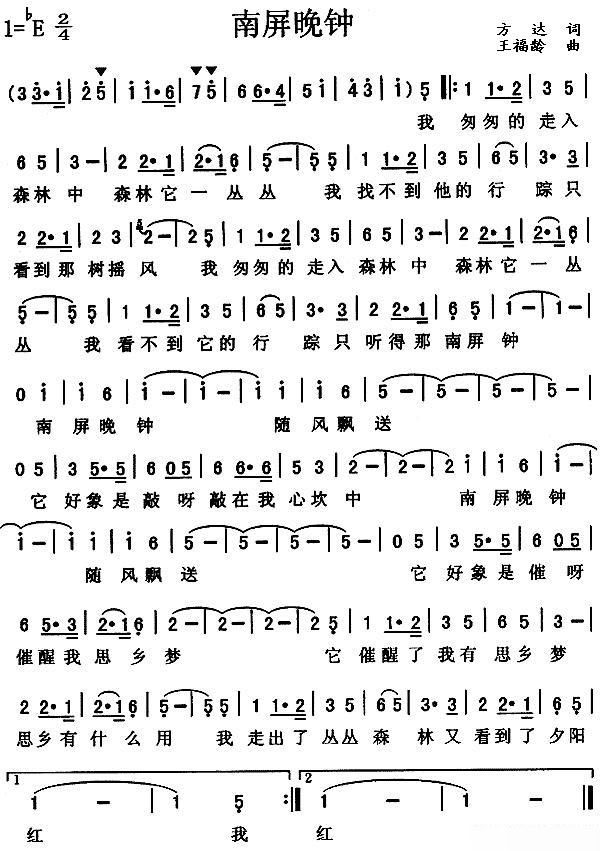 南屏晚钟
1=♭E 2/4
方 达 词
王福龄 曲
(3 3·i | 2 5 | i i·6 | 7 5 | 6 6·4 | 5 i | 4·3 | i) 5 |: 1 1·2 | 3 5 |
我 匆匆的 走入
6 5 | 3 - | 2 2·1 | 2·1 6 | 5 - | 5 5 | 1 1·2 | 3·2 1 | 3 5 | 6 5 | 3·2 1 |
森林 中 森林它一 丛丛 我 找不到 他的 行 踪只
2 2·1 | 2 3 | 2 - | 2 5 | 1 1·2 | 3 5 | 6 5 | 3 - | 2 2·1 | 2·1 6 |
看到那 树摇 风 我 匆匆的 走入 森林 中 森林它一 丛
5 - | 5 5 | 1 1·2 | 3·2 1 | 3 5 | 6 5 | 3· 3 | 2 2·1 | 6 5 | 1 - | 1 - |
丛 我 看不到 它的 行 踪只 听得那 南屏 钟
0 i | i 6 | i - | i - | i i | i 6 | 5 - | 5 - | 5 - | 5 - |
南 屏晚 钟 随 风飘 送
0 5 | 3 5·5 | 6 0 5 | 6 6·6 | 3 5 | 2 - | 2 - | 2 i | i 6 | i - |
它 好象是 敲 呀 敲在我 心坎 中 南 屏晚 钟
i - | i i | i 6 | 5 - | 5 - | 5 - | 5 - | 0 5 | 3 5·5 | 6 0 5 |
随 风飘 送 它 好象是 催 呀
6 5·3 | 2·1 6 | 2 - | 2 - | 2 - | 2 5 | 1 1·2 | 3 5 | 6 5 | 3 - |
催醒我 思 乡 梦 它 催醒了 我有 思乡 梦
2 2·1 | 2·1 6 | 5 - | 5 5 | 1 1·2 | 3 5 | 6 5 | 3· 3 | 2 2·1 | 6 5 |
思乡有 什 么 用 我 走出了 丛丛 森 林又 看到了 夕阳
1 2
1 - | 1 5 :| 1 - | 1 - |
红 我 红